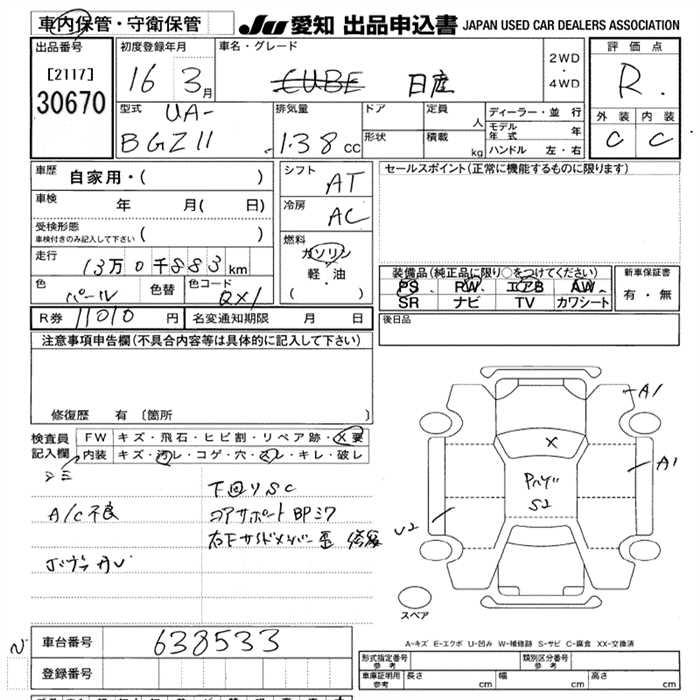 車内保管・守衛保管
JU 愛知 出品申込書 JAPAN USED CAR DEALERS ASSOCIATION
出品番号
[2117]
30670
初度登録年月
16 3月
車名・グレード
CUBE 日産
2WD
・
4WD
評価点
R.
外装 内装
C C
型式
UA-
BGZ11
排気量
1.38cc
ドア
形状
定員 人
積載 kg
ディーラー・並行
モデル年式 年
ハンドル 左・右
車歴 自家用・( )
車検 年 月( 日)
受検形態
車検付きのみ記入して下さい ( )
走行 13万0千883km
色 パール 色替 色コード QX1
R券 11010円 名変通知期限 月 日
シフト AT
冷房 AC
燃料
ガソリン
軽・油
( )
セールスポイント(正常に機能するものに限ります)
装備品(純正品に限り○をつけてください)
PS PW エアB AW
SR ナビ TV カワシート
新車保証書
有・無
後日品
注意事項申告欄(不具合内容等は具体的に記入して下さい)
修復歴 有〔箇所 〕
検査員記入欄
FW キズ・飛石・ヒビ割・リペア跡・X要
内装 キズ・汚レ・コゲ・穴・スレ・キレ・破レ
シミ
A/C不良
下回りSC
コアサポート BPミワ
右下サイドメンバー歪 修復
A1
X
A1
S2
U2
スペア
A-キズ E-エクボ U-凹み W-補修跡 S-サビ C-腐食 XX-交換済
車台番号 638533
登録番号
形式指定番号 参考
類別区分番号 参考
車庫証明用 参考 長さ cm 幅 cm 高さ cm